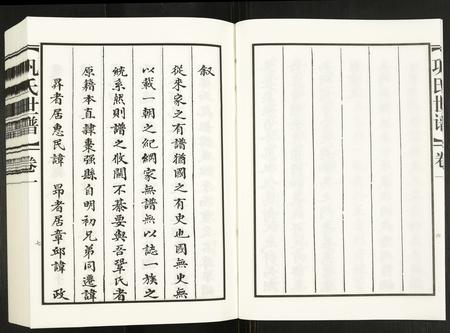 巩氏世谱
卷一
叙
從來家之有譜猶國之有史也國無史無
以載一朝之紀綱家無譜無以誌一族之
統系然則譜之攸關不綦要與吾鞏氏者
原籍本直隸棗强縣自明初兄弟同遷諱
昇者居惠民諱 昴者居章邱諱 政
巩氏世谱
卷一
七